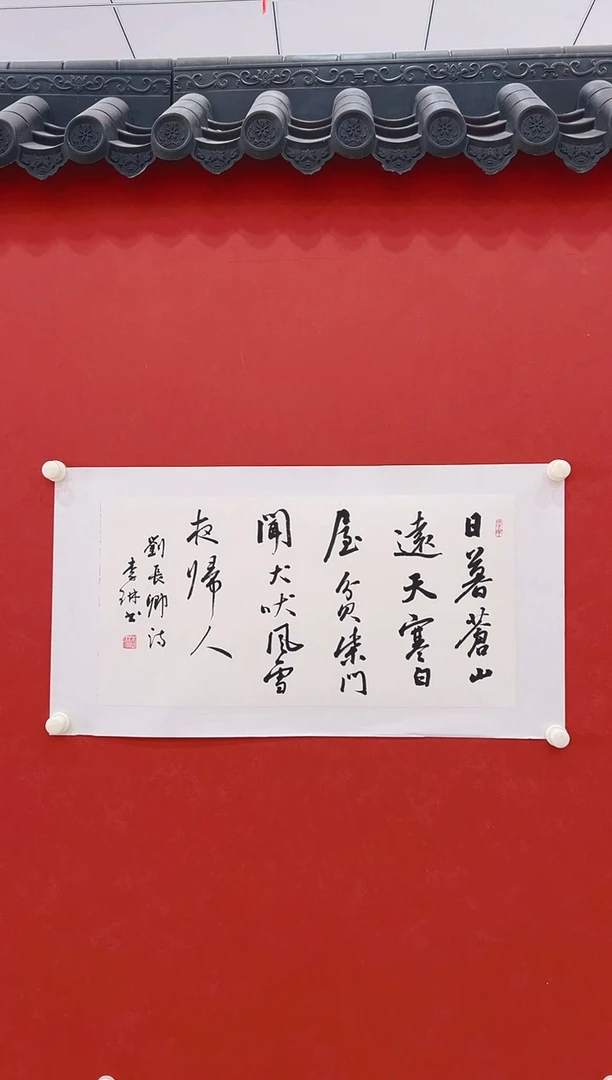 日暮蒼山
遠天寒白
屋貧柴門
聞犬吠風雪
夜歸人
劉長卿詩
李琳書